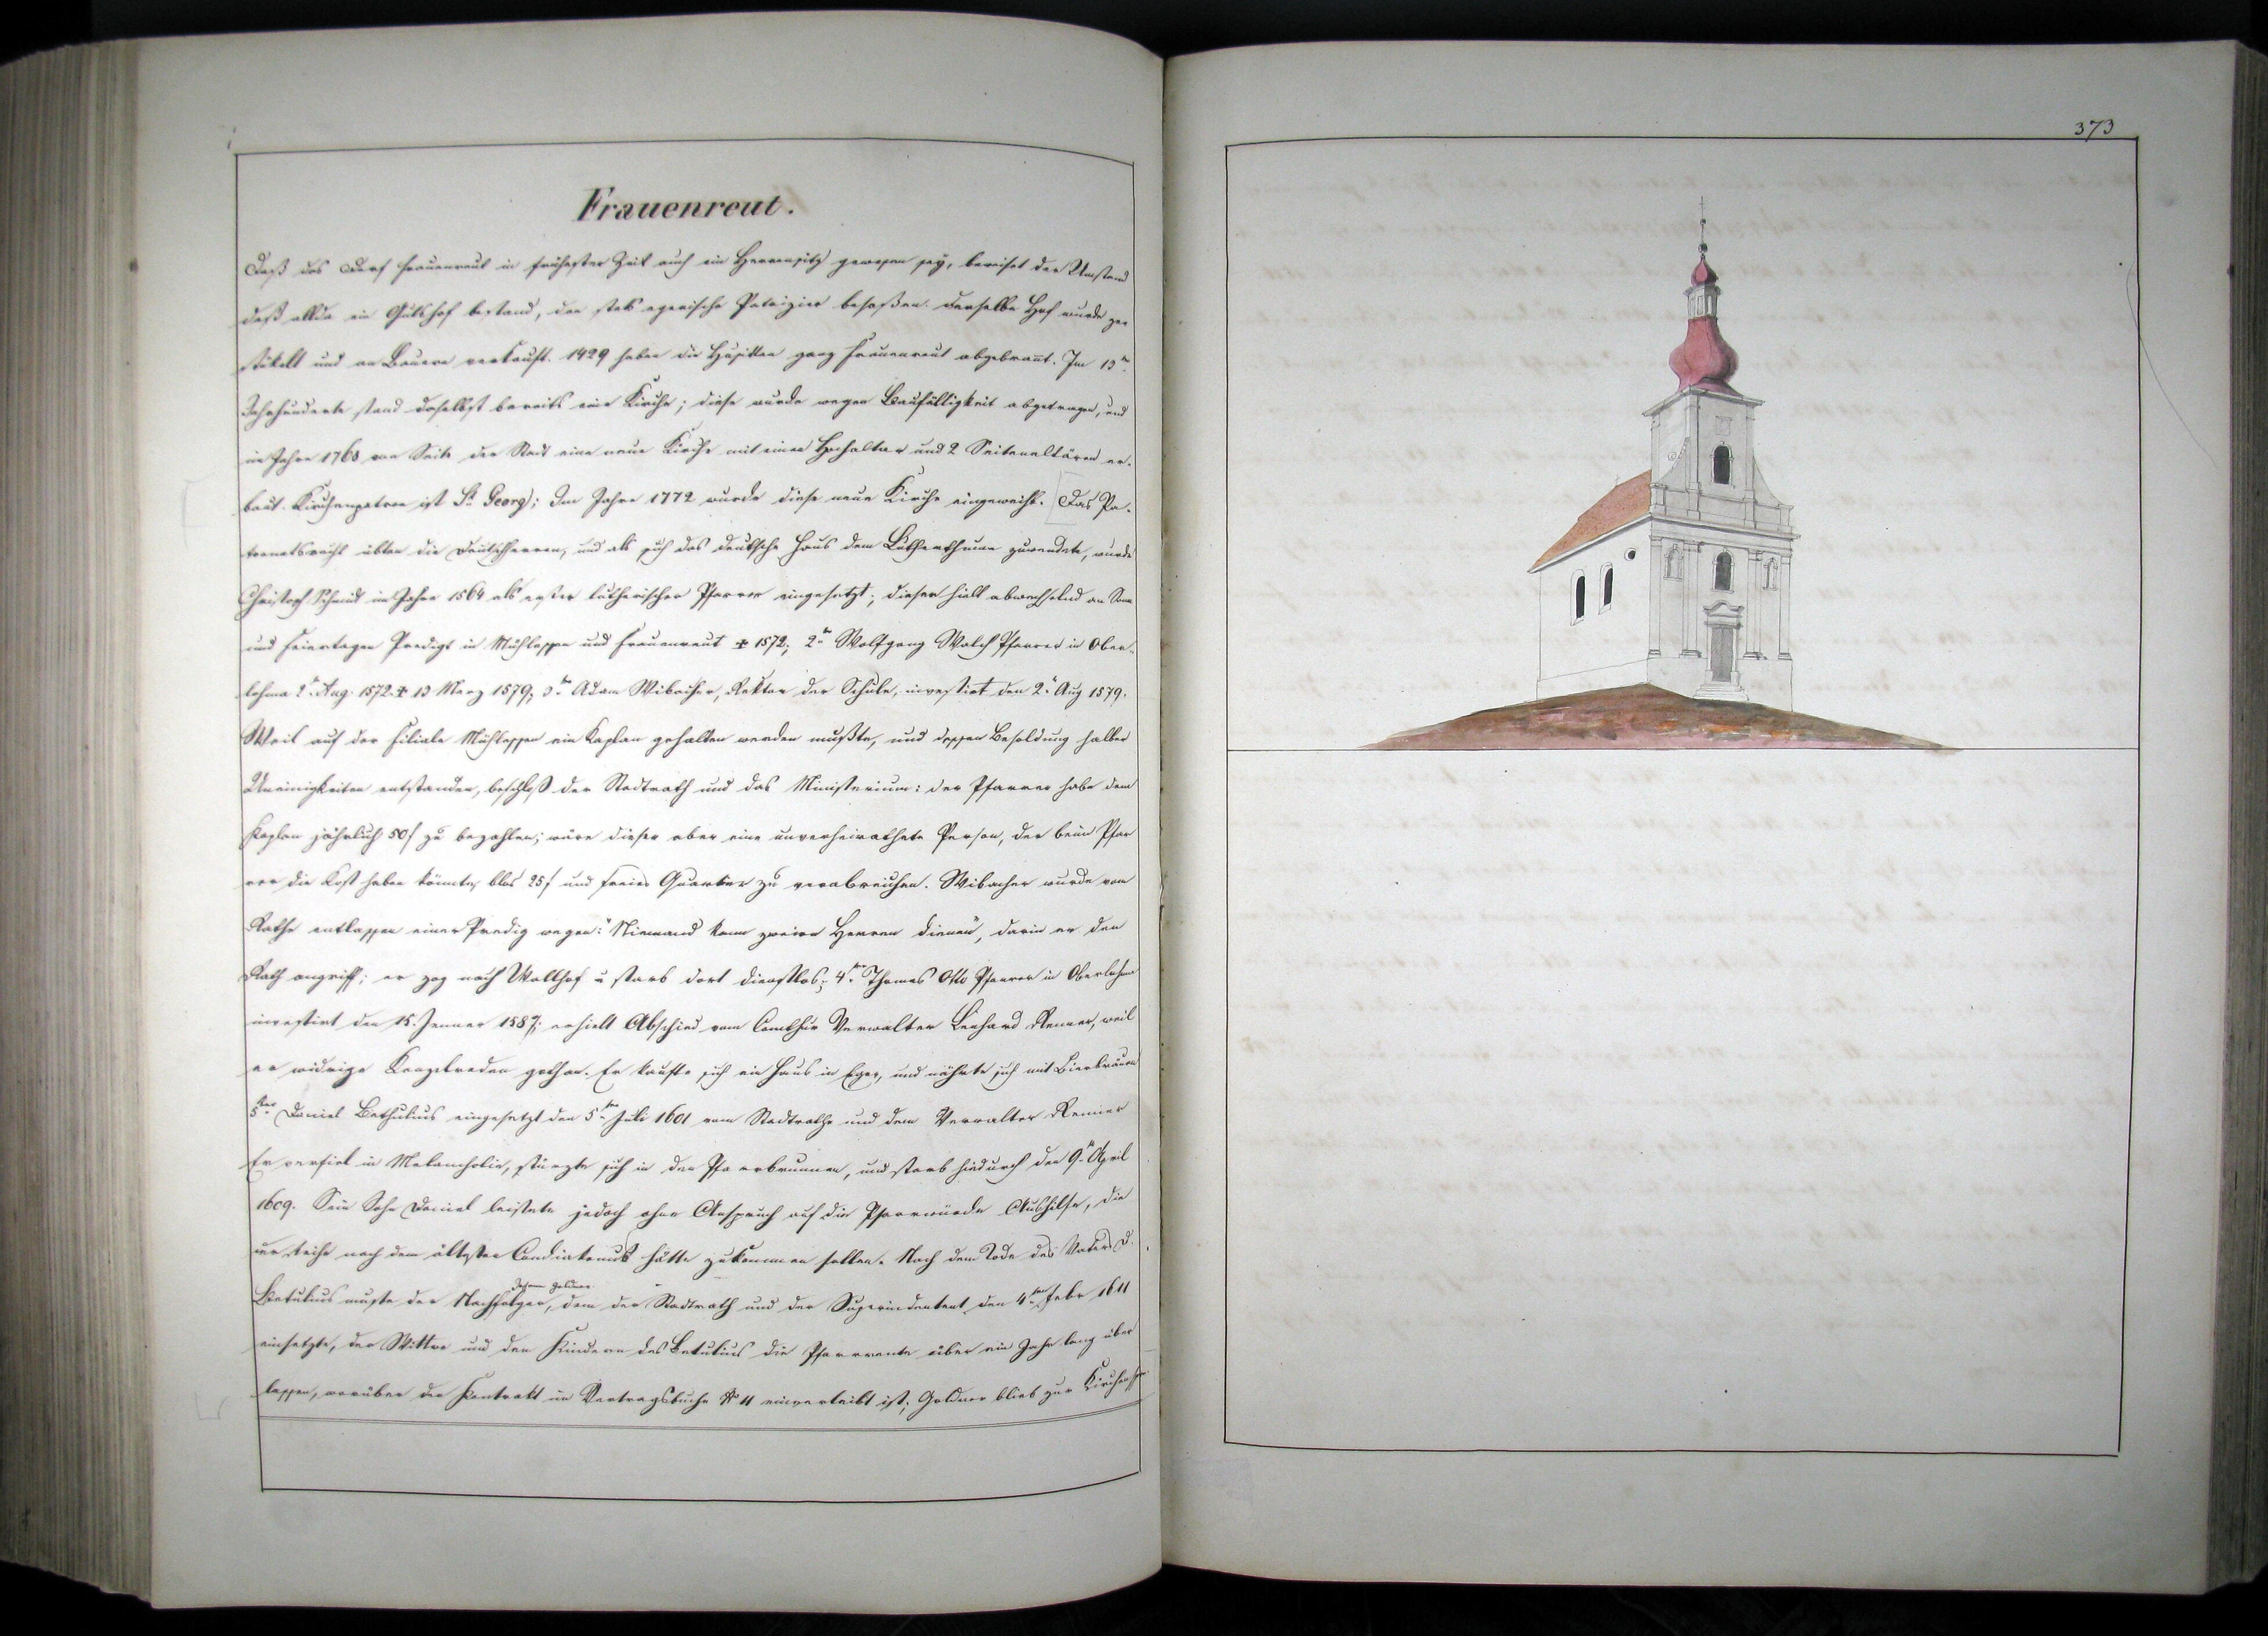 373
Frauenreut.
Daß das Dorf Frauenreut in frühester Zeit auch ein Herrensitz gewesen sey, beweiset der Umstand
daß allda ein Gutshof bestand, den stets egerische Patrizier besaßen. Derselbe Hof wurde zer
stükelt und an Bauern verkauft. 1429 haben die Husitten ganz Frauenreut abgebrannt. Im 13ten
Jahrhunderte stand daselbst bereits eine Kirche; diese wurde wegen Baufälligkeit abgetragen, und
im Jahre 1768 von Seite der Stadt eine neue Kirche mit einem Hochaltar und 2 Seitenaltären er-
baut. Kirchenpatron ist St Georg; Im Jahre 1772 wurde diese neue Kirche eingeweiht. Das Pa-
tronatsrecht übten die Deutschherren, und als sich das deutsche Haus dem Lutherthume zuwendete, wurde
Christoph Schmid im Jahre 1564 als erster lutherischer Pfarrer eingesetzt; dieser hielt abwechselnd an Sonn
und Feiertagen Predigt in Mühlessen und Frauenreut + 1572; 2ter Wolfgang Walch Pfarrer in Ober-
lohma 2t Aug. 1572 + 13 Merz 1579; 3ter Adam Wibacher, Rektor der Schule, investirt den 2t Aug 1579.
Weil auf der Filiale Mühlessen ein Kaplan gehalten werden mußte, und dessen Besoldung halber
Uneinigkeiten entstanden, beschloß der Stadtrath und das Ministerium: der Pfarrer habe dem
Kaplan jährlich 50 f zu bezahlen; wäre dieser aber eine unverheirathete Person, der beim Pfar
rer die Kost haben könnte, blos 25 f und freies Quartier zu verabreichen. Wibacher wurde vom
Rathe entlassen einer Predig wegen: "Niemand kann zweien Herren dienen", darin er den
Rath angriff; er zog nach Wallhof u starb dort dienstlos; 4ter Thomas Otto Pfarrer in Oberlohma
investirt den 15. Jenner 1587; erhielt Abschied vom Comthur Verwalter Leonhard Renner, weil
er widrige Kanzelreden gethan. Er kaufte sich ein Haus in Eger, und nährte sich mit Bierbräuen
5ter Daniel Bethulius eingesetzt den 5ten Juli 1601 vom Stadtrathe und dem Verwalter Renner
Er verfiel in Melancholie, stürzte sich in den Pfarrbrunnen, und starb hiedurch den 9t April
1609. Sein Sohn Daniel leistete jedoch ohne Anspruch auf die Pfarrwürde Aushilfe, die
der Reihe nach dem ältesten hätte zukommen sollen. Nach dem Tode des Vaters D.
Betulius mußte der Nachfolger, Johann Goldner dem der Stadtrath und der Superindentent den 4ten Febr 1611
einsetzte, der Wittwe und den Kindern des Betulius die Pfarrrente über ein Jahr lang über
lassen, worüber der Kontrakt im Vertragsbuche No 11 einverleibt ist; Goldner blieb zur